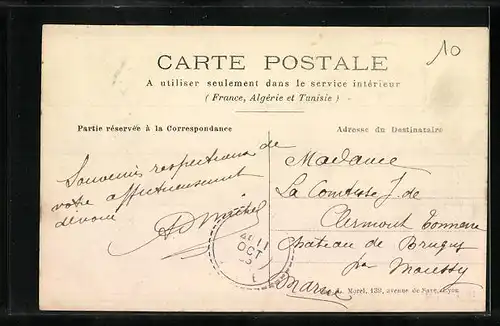 10
CARTE POSTALE
A utiliser seulement dans le service intérieur
( France, Algérie et Tunisie )
Partie réservée à la Correspondance
Adresse du Destinataire
Souvenirs respectueux de
votre affectueusement
dévoué
Madame
La Comtesse J. de
Clermont Tonnerre
Château de Brugny
par Moussy
Marne
11
OCT
Morel, 139, avenue de Saxe, Lyon